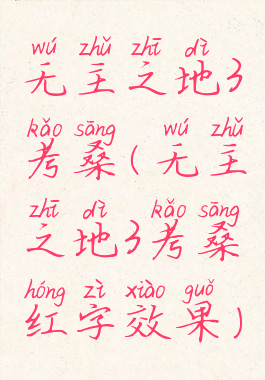 wú zhǔ zhī dì
无主之地3
kǎo sāng wú zhǔ
考桑(无主
zhī dì kǎo sāng
之地3考桑
hóng zì xiào guǒ
红字效果)